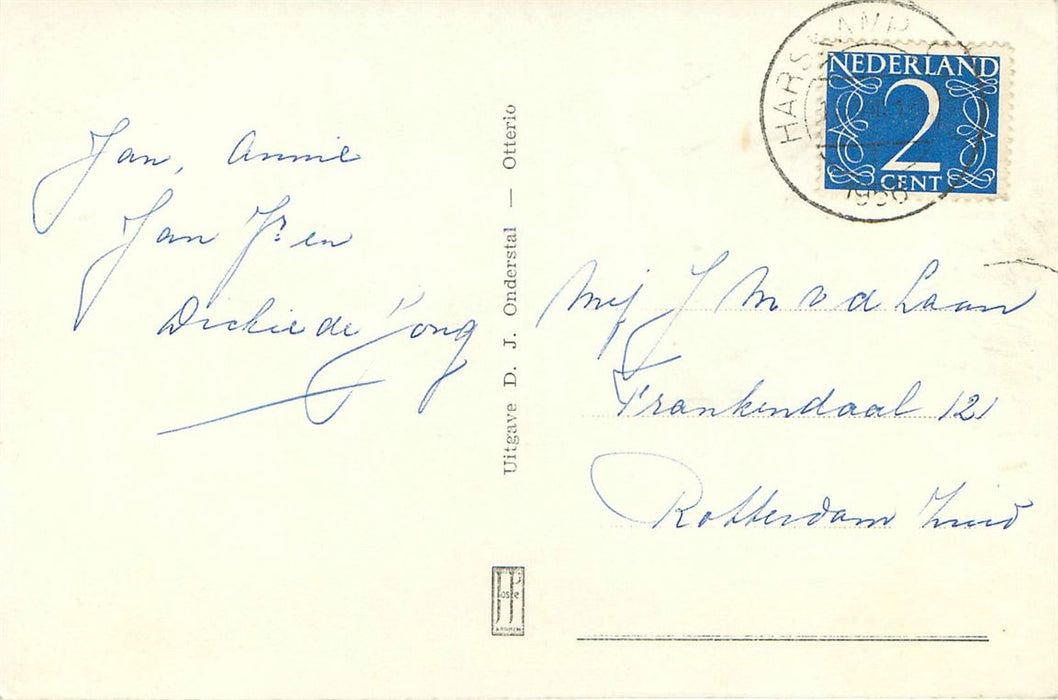 Jan, Annie
Jan Jr en
Dickie de Jong
Uitgave D. J. Onderstal — Otterlo
HARSKAMP
1956
NEDERLAND
2
CENT
Mej J M v d Laan
Frankendaal 121
Rotterdam Zuid